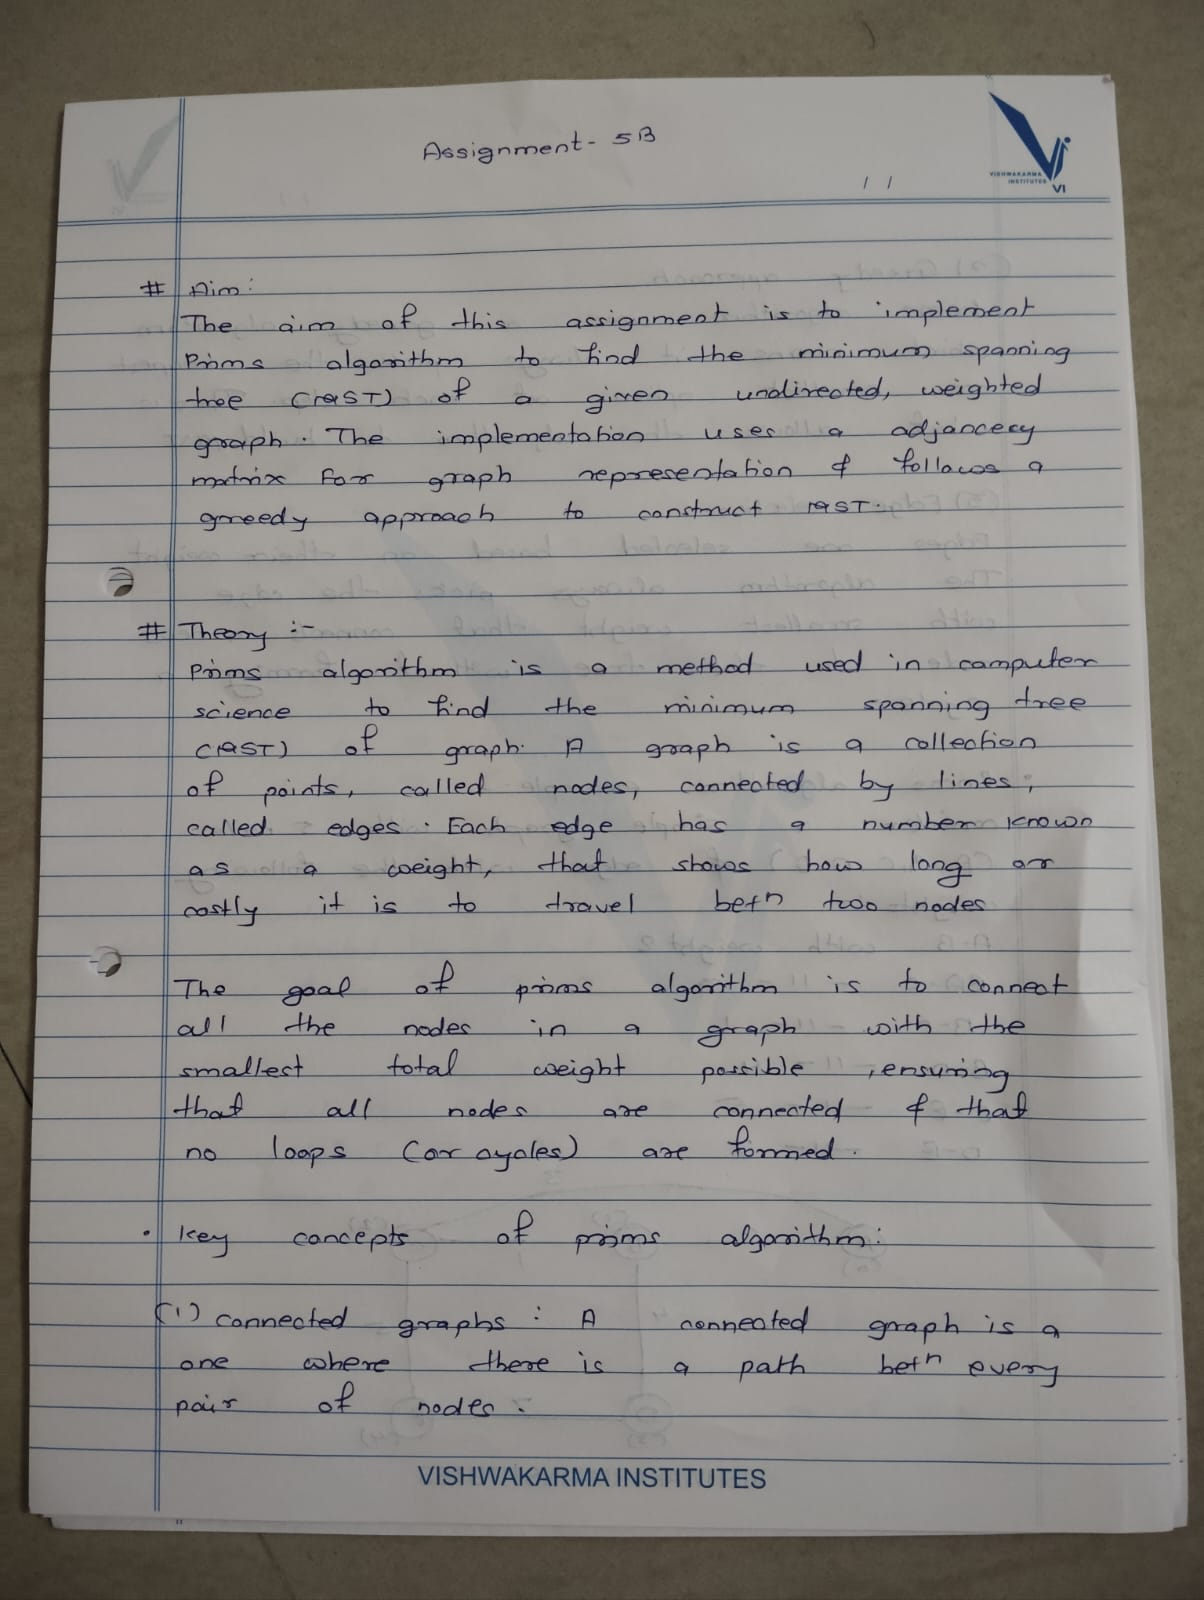 Assignment - 5B
/ /
VISHWAKARMA
INSTITUTES
VI
# Aim:
The aim of this assignment is to implement
Prims algorithm to find the minimum spanning
tree (MST) of a given undirected, weighted
graph. The implementation uses a adjancecy
matrix for graph representation & follows a
greedy approach to construct MST.
# Theory :-
Prims algorithm is a method used in computer
science to find the minimum spanning tree
(MST) of graph. A graph is a collection
of points, called nodes, connected by lines,
called edges. Each edge has a number known
as a weight, that shows how long or
costly it is to travel betn two nodes
The goal of prims algorithm is to connect
all the nodes in a graph with the
smallest total weight possible, ensuring
that all nodes are connected & that
no loops (or cycles) are formed.
• key concepts of prims algorithm:
(1) connected graphs : A connected graph is a
one where there is a path betn every
pair of nodes.
VISHWAKARMA INSTITUTES